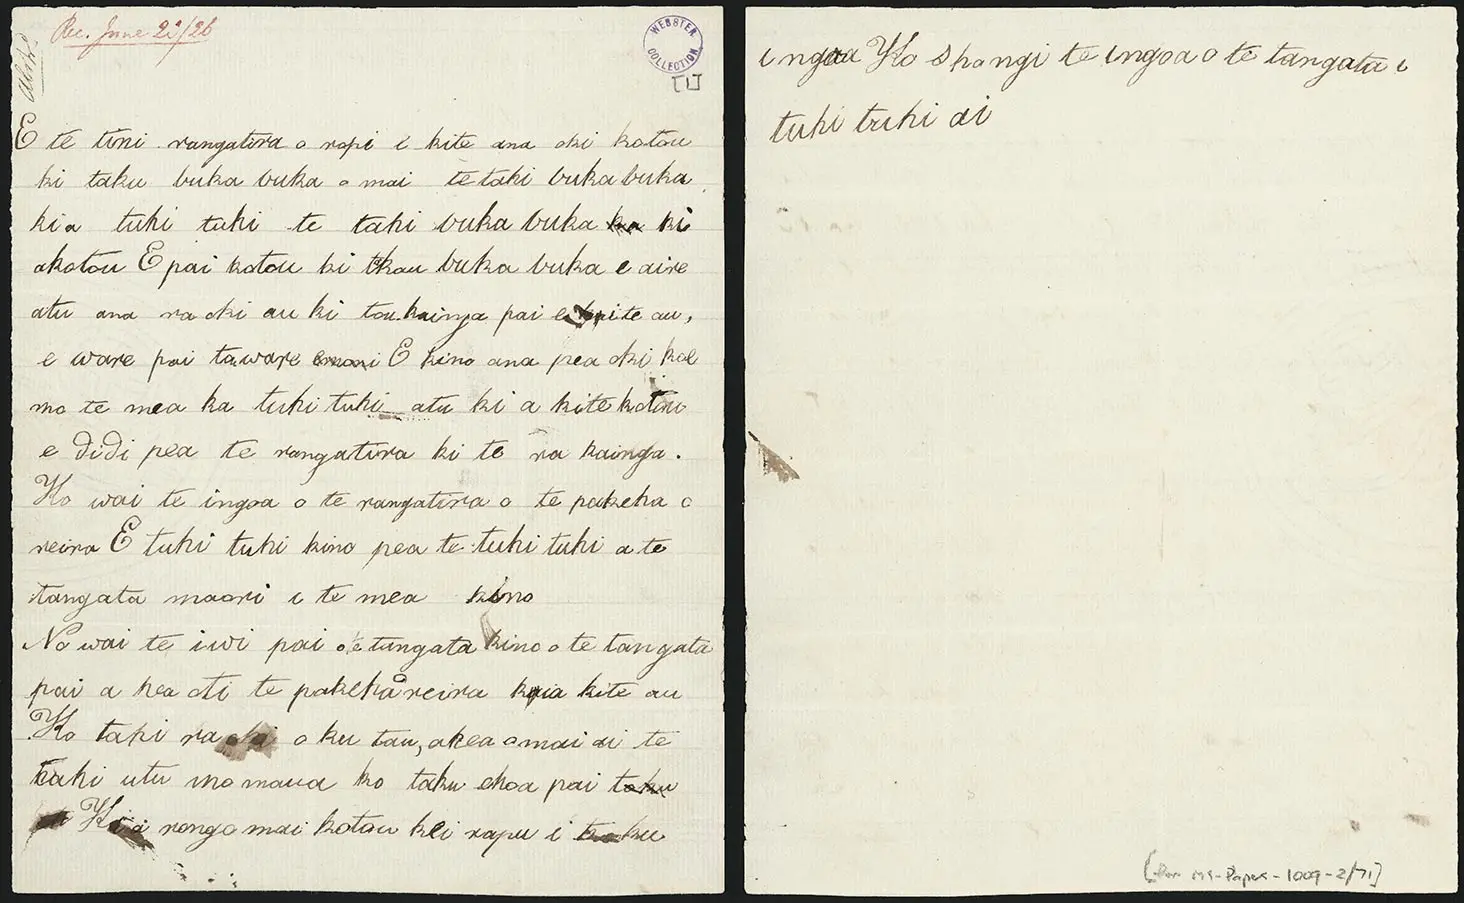 Rec. June 22/26
WEBSTER COLLECTION
[1]
E te tini rangatira o rapi e kite ana oki kotou
ki taku buka buka o mai te taki buka buka
kia tuhi tuhi te tahi buka buka ki
akotou E pai kotou ki buka buka e aire
atu ana ra oki au ki tou kainga pai e kite au,
e ware pai ta ware E kino ana pea oki koe
mo te mea ka tuhi tuhi atu ki a kite kotou
e didi pea te rangatira ki te ra kainga.
Ko wai te ingoa o te rangatira o te pakeha o
reira E tuhi tuhi kino pea te tuhi tuhi a te
tangata maori i te mea kino
No wai te iwi pai o te tangata kino o te tangata
pai a hea oti te pakeha o reira kia kite au
Ko tahi ra oki o ku tau, ahea omai ai te
tahi utu mo maua ko taku ehoa pai
Kia rongo mai kotou kei rapu i
ingoa Ko shongi te ingoa o te tangata i
tuhi tuhi ai
MS-Papers-1009-2/71]